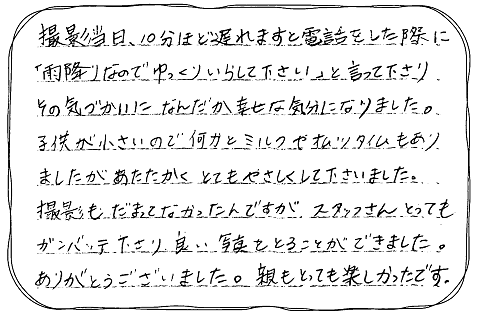 撮影当日、10分ほど遅れますと電話をした際に
「雨降りなのでゆっくりいらして下さい」と言って下さり
その気づかいになんだか幸せな気分になりました。
子供が小さいので何かとミルクやオムツタイムもあり
ましたがあたたかくとてもやさしくして下さいました。
撮影もだまてなかったんですが スタッフさんとっても
ガンバッテ下さり良い写真をとることができました。
ありがとうございました。親もとっても楽しかったです。